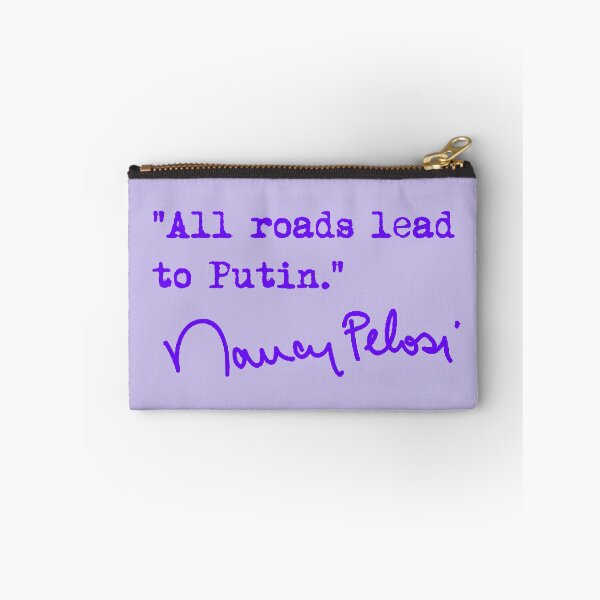 "All roads lead
to Putin."
Nancy Pelosi